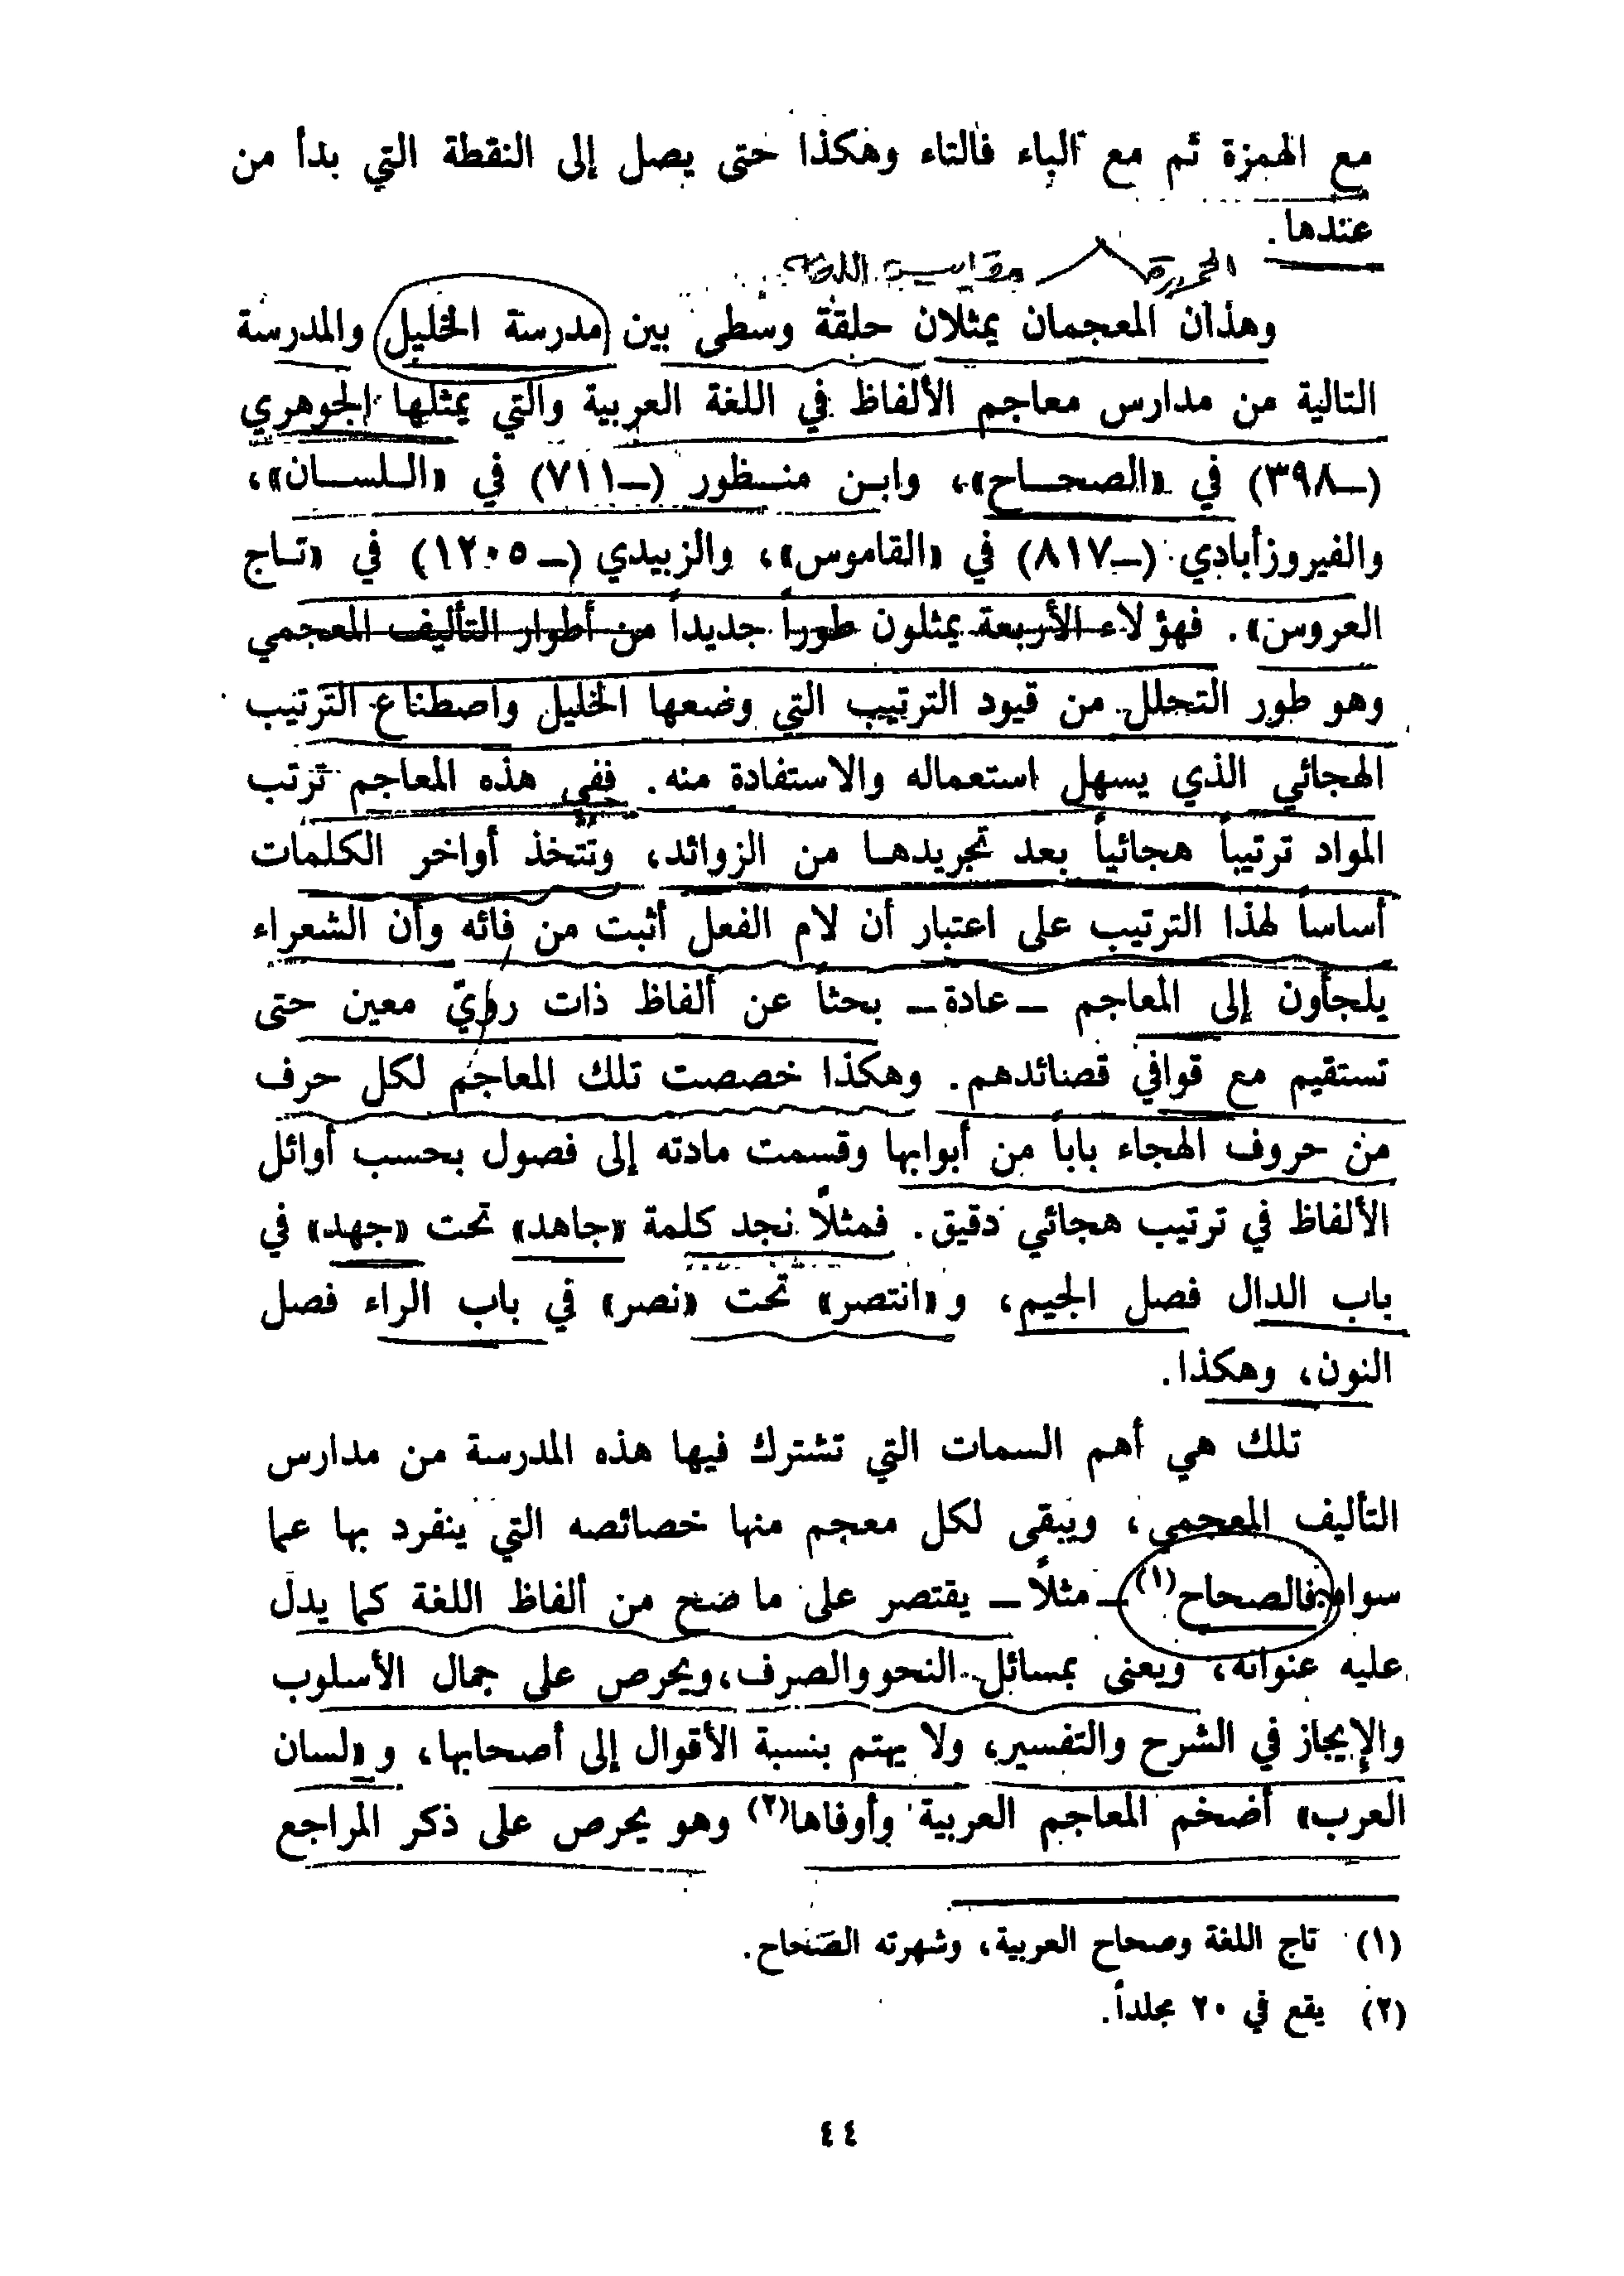 مع الهمزة ثم مع الباء فالتاء وهكذا حتى يصل إلى النقطة التي بدأ من
عندها.
مقاييس اللغة
وهذان المعجمان يمثلان حلقة وسطى بين مدرسة الخليل والمدرسة
التالية من مدارس معاجم الألفاظ في اللغة العربية والتي يمثلها الجوهري
(ــ٣٩٨) في «الصحاح»، وابن منظور (ــ٧١١) في «اللسان»،
والفيروزأبادي (ــ٨١٧) في «القاموس»، والزبيدي (ــ١٢٠٥) في «تاج
العروس». فهؤلاء الأربعة يمثلون طوراً جديداً من أطوار التأليف المعجمي
وهو طور التحلل من قيود الترتيب التي وضعها الخليل واصطناع الترتيب
الهجائي الذي يسهل استعماله والاستفادة منه. ففي هذه المعاجم ترتب
المواد ترتيباً هجائياً بعد تجريدها من الزوائد، وتتخذ أواخر الكلمات
أساساً لهذا الترتيب على اعتبار أن لام الفعل أثبت من فائه وأن الشعراء
يلجأون إلى المعاجم ــ عادة ــ بحثاً عن ألفاظ ذات رويّ معين حتى
تستقيم مع قوافي قصائدهم. وهكذا خصصت تلك المعاجم لكل حرف
من حروف الهجاء باباً من أبوابها وقسمت مادته إلى فصول بحسب أوائل
الألفاظ في ترتيب هجائي دقيق. فمثلاً نجد كلمة «جاهد» تحت «جهد» في
باب الدال فصل الجيم، و«انتصر» تحت «نصر» في باب الراء فصل
النون، وهكذا.
تلك هي أهم السمات التي تشترك فيها هذه المدرسة من مدارس
التأليف المعجمي، ويبقى لكل معجم منها خصائصه التي ينفرد بها عما
سواه فالصحاح(١) ــ مثلاً ــ يقتصر على ما صح من ألفاظ اللغة كما يدل
عليه عنوانه، ويعنى بمسائل النحو والصرف، ويحرص على جمال الأسلوب
والإيجاز في الشرح والتفسير، ولا يهتم بنسبة الأقوال إلى أصحابها، و«لسان
العرب» أضخم المعاجم العربية وأوفاها(٢) وهو يحرص على ذكر المراجع
(١) تاج اللغة وصحاح العربية، وشهرته الصحاح.
(٢) يقع في ٢٠ مجلداً.
٤٤